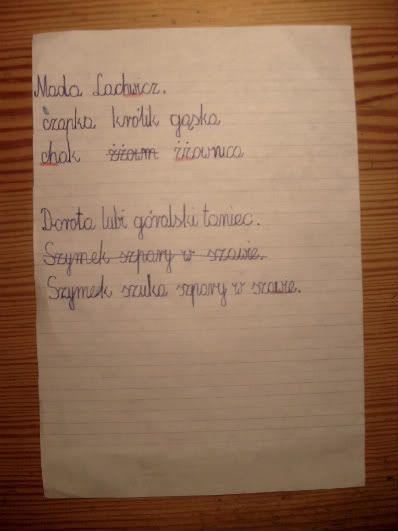 Mada Lachwicz.
czapka królik gąska
chak żżown żżownica
Dorota lubi góralski taniec.
Szymek szpary w szawie.
Szymek szuka szpary w szawie.